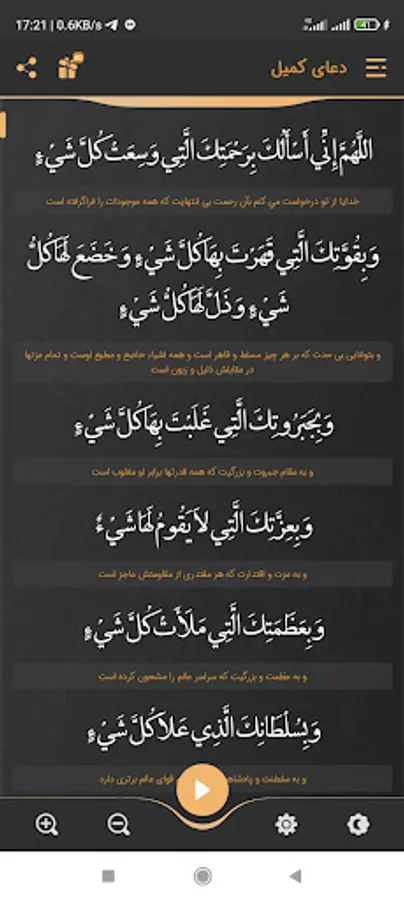 17:21 | 0.6KB/s
41
دعای کمیل
اللَّهُمَّ إِنِّي أَسْأَلُكَ بِرَحْمَتِكَ الَّتِي وَسِعَتْ كُلَّ شَيْءٍ
خدایا از تو درخواست می کنم بآن رحمت بی انتهایت که همه موجودات را فراگرفته است
وَ بِقُوَّتِكَ الَّتِي قَهَرْتَ بِهَا كُلَّ شَيْءٍ وَ خَضَعَ لَهَا كُلُّ
شَيْءٍ وَ ذَلَّ لَهَا كُلُّ شَيْءٍ
و بتوانایی بی حدت که بر هر چیز مسلط و قاهر است و همه اشیاء خاضع و مطیع اوست و تمام عزتها
در مقابلش ذلیل و زبون است
وَ بِجَبَرُوتِكَ الَّتِي غَلَبْتَ بِهَا كُلَّ شَيْءٍ
و به مقام جبروت و بزرگیت که همه قدرتها برابر او مغلوب است
وَ بِعِزَّتِكَ الَّتِي لاَ يَقُومُ لَهَا شَيْءٌ
و به عزت و اقتدارت که هر مقتدری از مقاومتش عاجز است
وَ بِعَظَمَتِكَ الَّتِي مَلَأَتْ كُلَّ شَيْءٍ
و به عظمت و بزرگیت که سراسر عالم را مشحون کرده است
وَ بِسُلْطَانِكَ الَّذِي عَلاَ كُلَّ شَيْءٍ
و به سلطنت و پادشاه قوای عالم برتری دارد